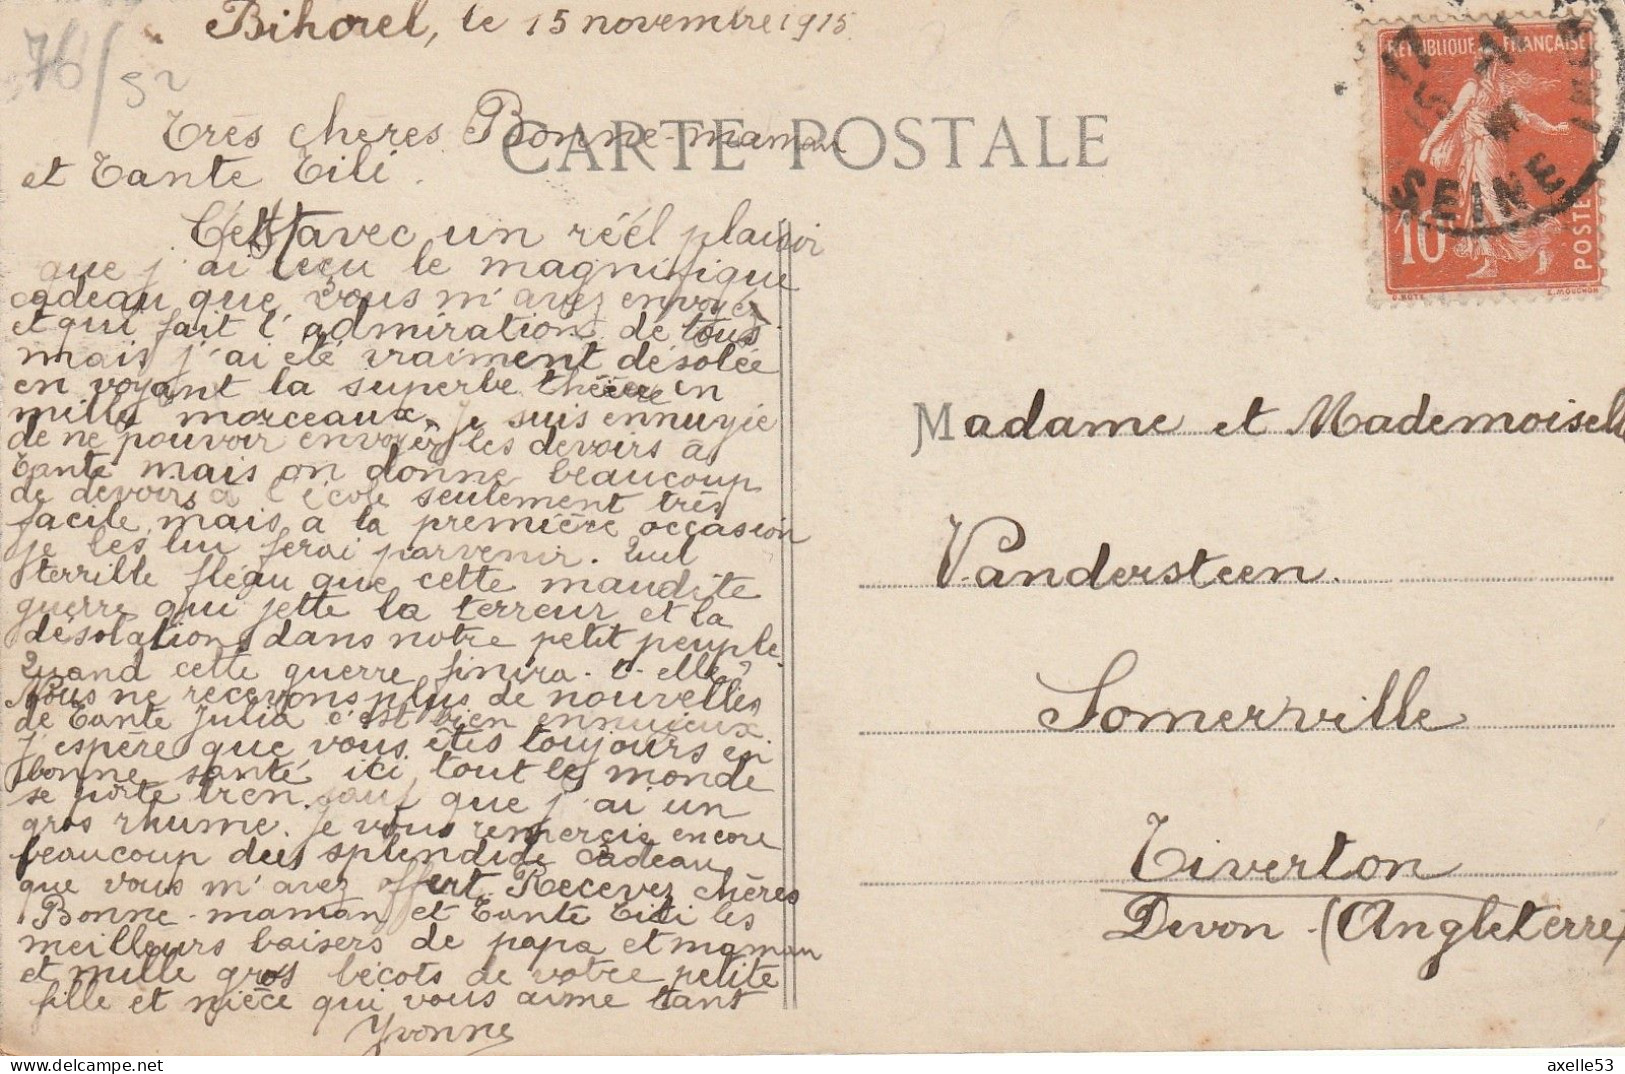 Bihorel, le 15 novembre 1915.
76/52
Très chères Bonne-maman
et Tante Titi.
CARTE POSTALE
C'est avec un réel plaisir
que j'ai reçu le magnifique
cadeau que vous m'avez envoyez
et qui fait l'admiration de tous
mais j'ai été vraiment désolée
en voyant la superbe théière en
mille morceaux. Je suis ennuyie
de ne pouvoir envoyer les devoirs à
Tante mais on donne beaucoup
de devoirs à l'école seulement très
facile, mais a la première occasion
je les lui ferai parvenir. Quel
terrible fléau que cette maudite
guerre qui jette la terreur et la
désolation dans notre petit peuple.
Quand cette guerre finira-t-elle?
Nous ne recevons plus de nouvelles
de Tante Julia c'est bien ennuieux
J'espère que vous êtes toujours en
bonne santé ici tout le monde
se porte bien. sauf que j'ai un
gros rhume. Je vous remercie encore
beaucoup du splendide cadeau
que vous m'avez offert. Recevez chères
Bonne-maman et Tante Titi les
meilleurs baisers de papa et maman
et mille gros bécots de votre petite
fille et nièce qui vous aime tant
Yvonne
REPUBLIQUE FRANÇAISE
10 c
POSTES
O. ROTY
E. MOUCHON
17
15 - 11
SEINE INFRE
Madame et Mademoiselle
Vandersteen.
Somerville
Tiverton
Devon-(Angleterre)
axelle53